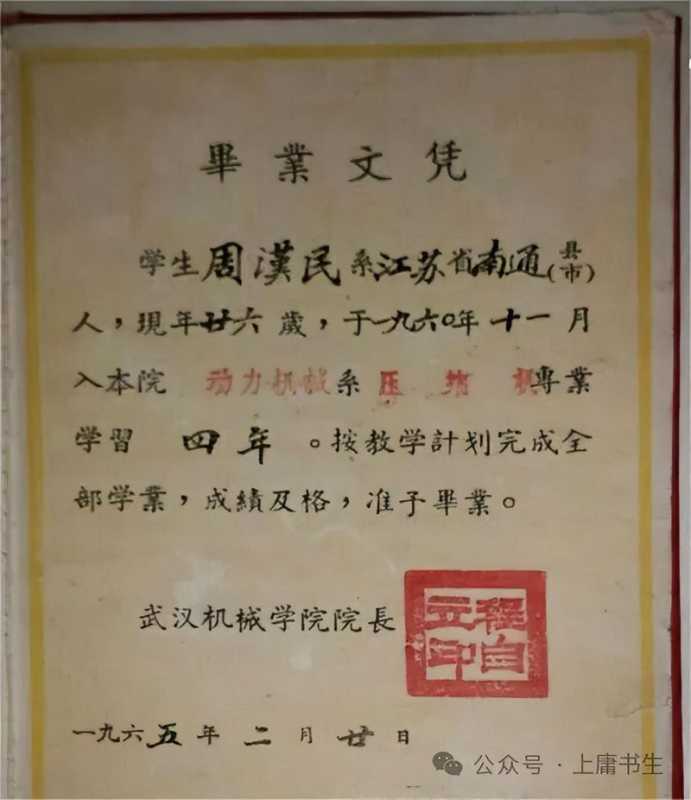 畢業文凭
学生周漢民系江苏省南通(县市)
人,現年廿六歲,于一九六〇年十一月
入本院 动力机械系压缩机專業
学習 四年 。按教学計划完成全
部学業,成績及格,准予畢業。
武汉机械学院院長
程自立印
一九六五年二月廿日
公众号·上庸书生